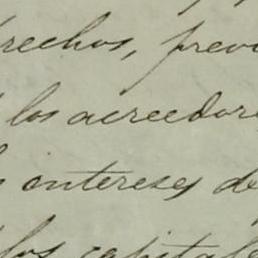 rechos, previ
los acreedore
intereses de
los capitale